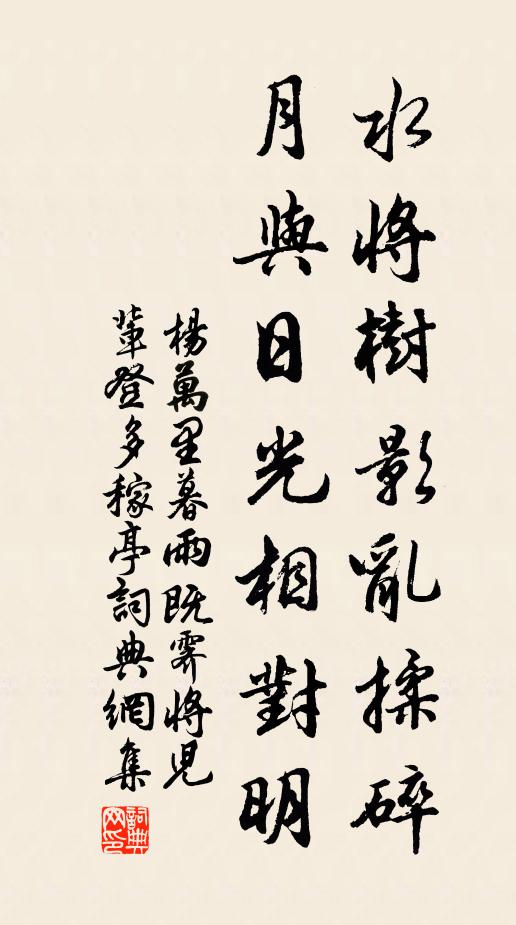 水將樹影亂揉碎
月與日光相對明
楊萬里暮雨既霽將児
輩登多稼亭詞典網集
詞典
网印